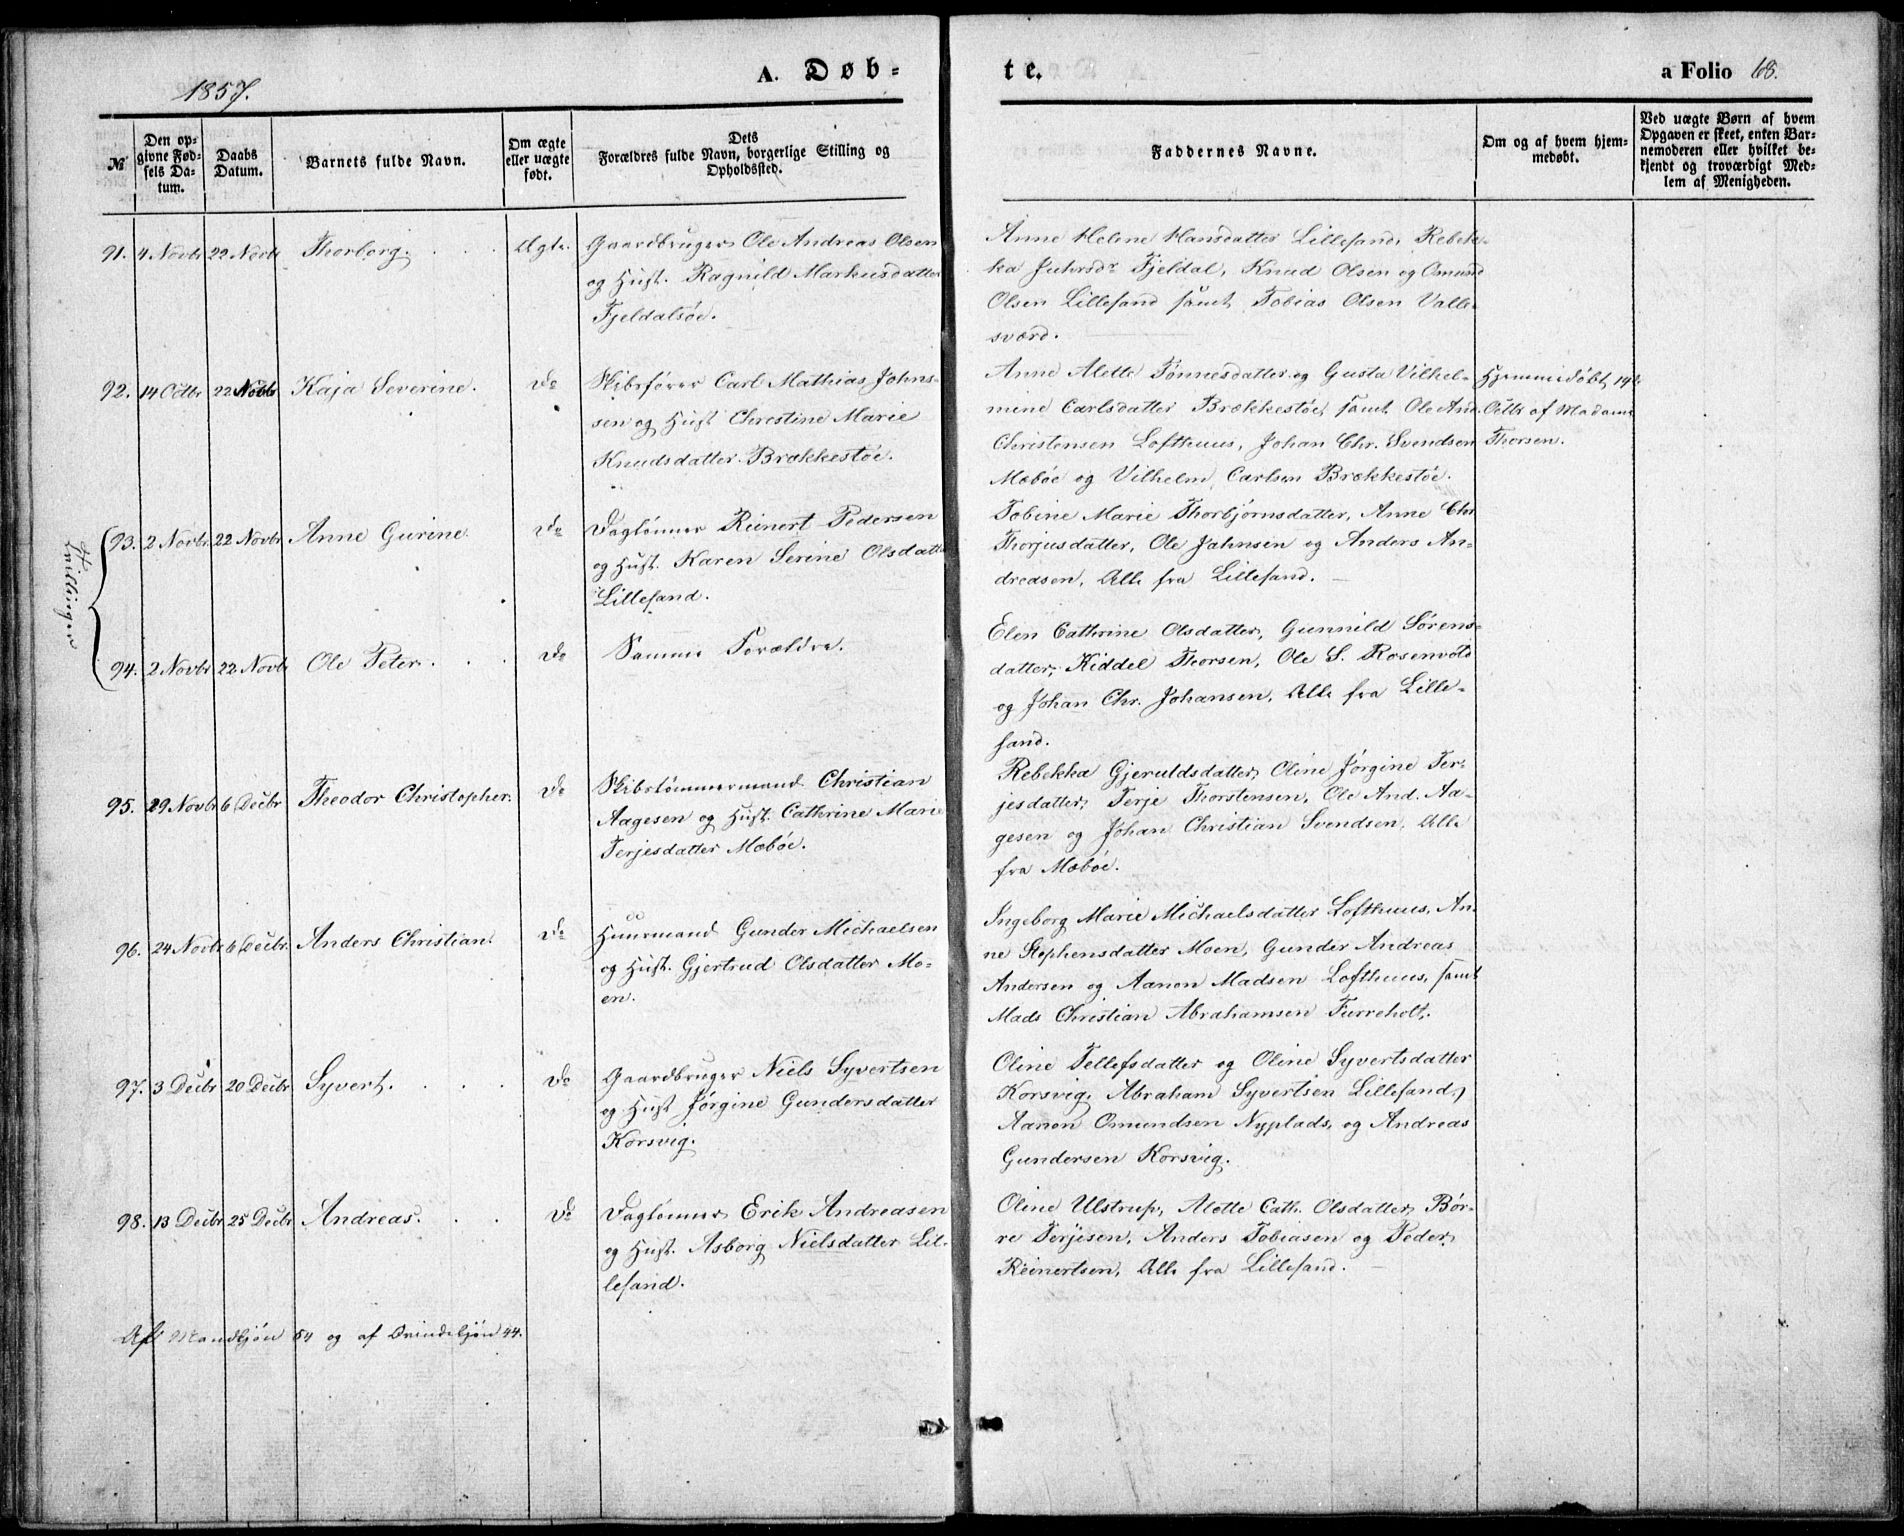 1857.
A. Døb-
te.
a Folio 68.
№
Den op-
givne Fød-
sels Da-
tum.
Daabs
Datum.
Barnets fulde Navn.
Om ægte
eller uægte
født.
Dets
Forældres fulde Navn, borgerlige Stilling og
Opholdssted.
Faddernes Navne.
Om og af hvem hjem-
medøbt.
Ved uægte Børn af hvem
Opgaven er skeet, enten Bar-
nemoderen eller hvilket be-
kjendt og troværdigt Med-
lem af Menigheden.
91. 4 Novbr 22 Novbr Thorborg. Ægte.
Gaardbruger Ole Andreas Olsen
og Hust. Ragnild Markusdatter
Fjeldalsøe.
Anne Helene Hansdatter Lillesand, Rebek-
ka Fjeldal, Knud Olsen og Omund
Olsen Lillesand samt Tobias Olsen Valle-
sværd.
92. 14 Octbr 22 Novbr Kaja Severine. Do
Skibsfører Carl Mathias Johns-
sen og Hust Christine Marie
Knudsdatter Brækkestøe.
Anne Alette Tønnesdatter og Gusta Vilhel-
mine Carlsdatter Brækkestøe, samt Ole And.
Christensen Lofthuus, Johan Chr. Svendsen
Mæbøe og Vilhelm Carlsen Brækkestøe.
Hjemmedøbt 14de
Octbr af Madame
Thorsen.
Tvillinger
93. 2 Novbr. 22 Novbr Anne Gurine. Do
Daglønner Reinert Pedersen
og Hust. Karen Serine Olsdatter
Lillesand.
Tobine Marie Thorbjørnsdatter, Anne Chr.
Thorjusdatter, Ole Jahnsen og Anders An-
dreasen, Alle fra Lillesand.
94. 2 Novbr 22 Novbr Ole Peter. Do
Samme Forældre.
Elen Cathrine Olsdatter, Gunnild Sørens-
datter, Kiddel Thorsen, Ole S. Rosenvold
og Johan Chr. Johansen, Alle fra Lille-
sand.
95. 29 Novbr 6 Decbr Theodor Christopher. Do
Skibstømmermand Christian
Aagesen og Hust. Cathrine Marie
Terjesdatter Mæbøe.
Rebekka Gjeruldsdatter, Oline Jørgine Ter-
jesdatter, Terje Thorstensen, Ole And. Aa-
gesen og Johan Christian Svendsen, Alle
fra Mæbøe.
96. 24 Novbr 6 Decbr. Anders Christian. Do
Huusmand Gunder Michaelsen
og Hust. Gjertrud Olsdatter Mo-
en.
Ingeborg Marie Michaelsdatter Lofthuus, An-
ne Stephensdatter Moen, Gunder Andreas
Andersen og Aanon Madsen Lofthuus, samt
Mads Christian Abrahamsen Furreholt.
97. 3 Decbr 20 Decbr Syvert. Do
Gaardbruger Niels Syvertsen
og Hust Jørgine Gundersdatter
Korsvig.
Oline Tellefsdatter og Oline Syvertsdatter
Korsvig, Abraham Syvertsen Lillesand,
Aanon Omundsen Nyplads, og Andreas
Gundersen Korsvig.
98. 13 Decbr 25 Decbr Andreas. Do
Daglønner Erik Andreasen
og Hust. Asborg Nielsdatter Lil-
lesand.
Oline Ulstrup, Alette Cath. Olsdatter, Bør-
re Terjesen, Anders Tobiasen og Peder
Reinertsen, Alle fra Lillesand.
Af Mandkjøn 54 og af Qvindekjøn 44.